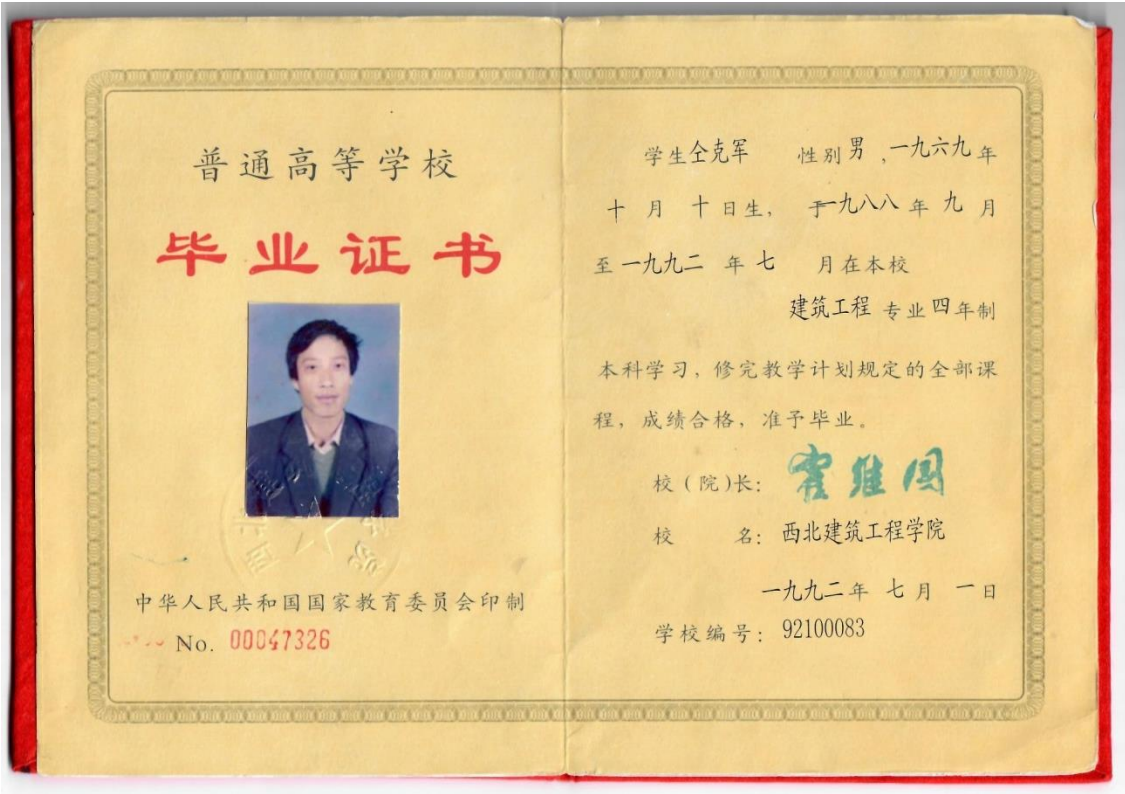 普通高等学校
毕业证书
中华人民共和国国家教育委员会印制
No. 00047326
学生仝克军 性别男,一九六九年
十月十日生, 于一九八八年九月
至一九九二年七月在本校
建筑工程专业四年制
本科学习,修完教学计划规定的全部课
程,成绩合格,准予毕业。
校(院)长: 霍维国
校 名: 西北建筑工程学院
一九九二年七月一日
学校编号: 92100083